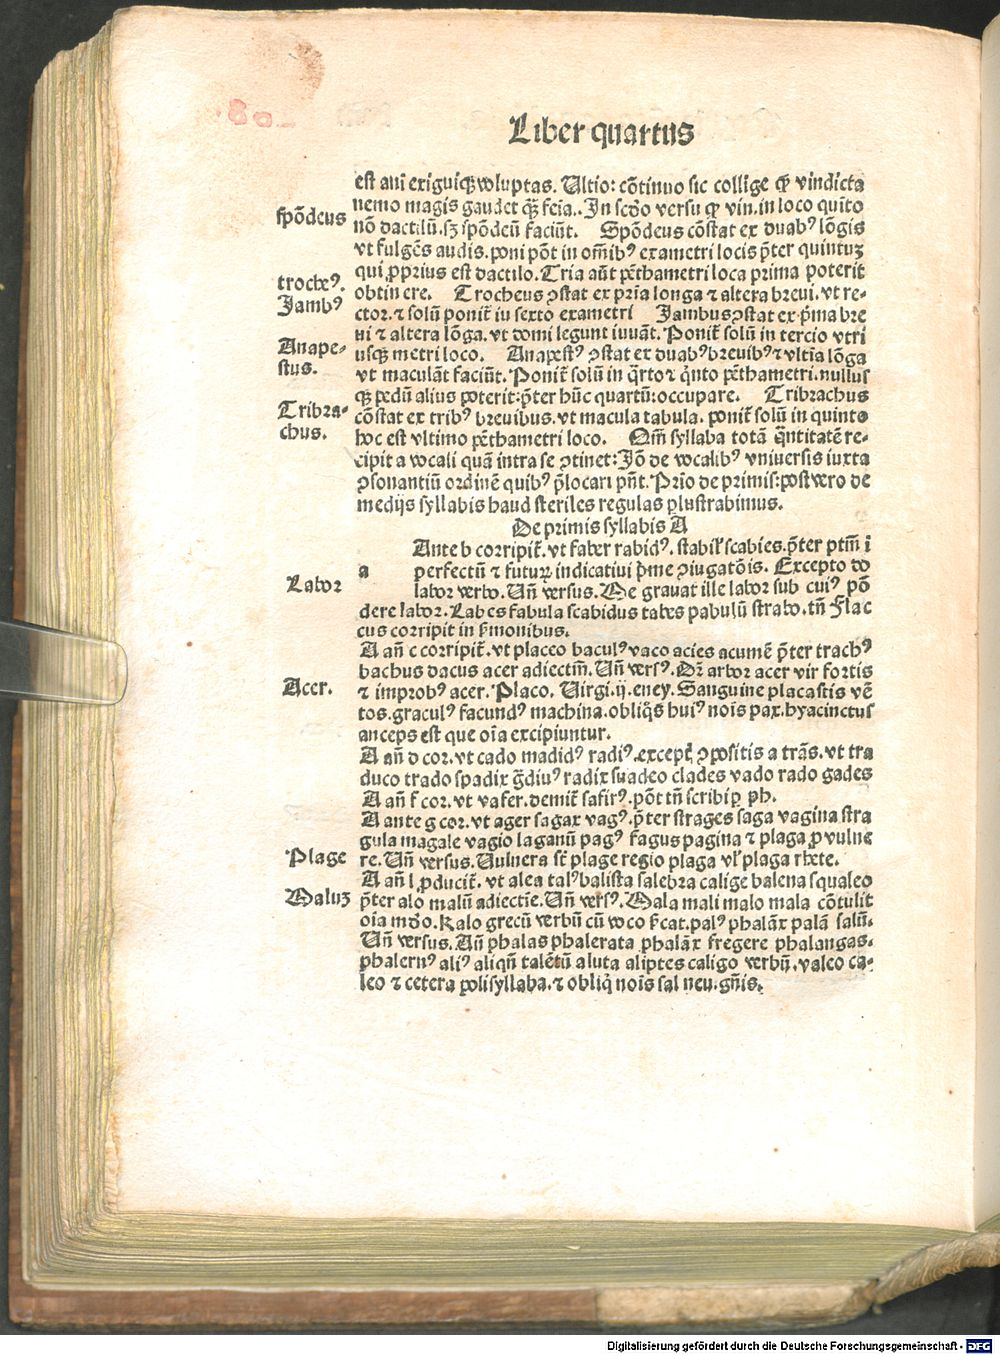 Liber quartus
est aui exiguiqꝫ voluptas. Ultio: cōtinuo sic collige qꝫ vindicta
nemo magis gaudet qꝫ̄ feīa. In scd̄o versu qꝫ vin. in loco quīto
spōdeus
nō dactilū. sꝫ spōdeū faciūt. Spōdeus cōstat ex duabꝰ lōgis
vt fulgēs audis. poni pōt in om̄ibꝰ exametri locis p̄ter quintuꝫ
qui ꝓprius est dactilo. Tria aūt pēthametri loca prima poterit
trocheꝰ.
obtinere. Trocheus ꝯstat ex prīa longa ⁊ altera breui. vt re-
Jambꝰ
ctor. ⁊ solū ponit̄ iu sexto exametri Jambus ꝯstat ex p̄ma bre
ui ⁊ altera lōga. vt domi legunt iuuāt. Ponit̄ solū in tercio vtri
Anape-
usqꝫ metri loco. Anapestꝰ ꝯstat ex duabꝰ breuibꝰ ⁊ vltīa lōga
stus.
vt maculāt faciūt. Ponit̄ solū in q̄rto ⁊ q̇nto pēthametri. nullus
qꝫ pedū alius poterit: p̄ter hūc quartū: occupare. Tribrachus
Tribra-
cōstat ex tribꝰ breuibus. vt macula tabula. ponit̄ solū in quinto
chus.
hoc est vltimo pēthametri loco. Om̄ syllaba totā q̄ntitatē re-
cipit a vocali quā intra se ꝯtinet: Jō de vocalibꝰ vniuersis iuxta
ꝯsonantiū ordinē quibꝰ p̄locari pn̄t. Prīo de primis: post vero de
medijs syllabis haud steriles regulas ꝑlustrabimus.
De primis syllabis A
Ante b corripit̄. vt faber rabidꝰ. stabil̄ scabies. p̄ter ptm̄ i
a perfectū ⁊ futuꝝ indicatiui p̄me ꝯiugatōis. Excepto do
Labor
labor verbo. Un̄ versus. Me grauat ille labor sub cuiꝰ pō
dere labor. Labes fabula scabidus tabes pabulū strabo. tn̄ Flac
cus corripit in s̄monibus.
A an̄ c corripit̄. vt placeo baculꝰ vaco acies acumē p̄ter trachꝰ
bachus dacus acer adiectm̄. Un̄ versꝰ. Or̄ arbor acer vir fortis
Acer.
⁊ improbꝰ acer. Placo. Virgi. ij. eney. Sanguine placastis vē
tos. graculꝰ facundꝰ machina. obliq̇s huiꝰ nois pax. hyacinctus
anceps est que oīa excipiuntur.
A an̄ d cor. vt cado madidꝰ radiꝰ. except̄ ꝯpositis a trās. vt tra
duco trado spadix ḡdiuꝰ radix suadeo clades vado rado gades
A an̄ f cor. vt vafer. demit̄ safirꝰ. pōt tn̄ scribi ꝑ ph.
A ante g cor. vt ager sagax vagꝰ. p̄ter strages saga vagina stra
gula magale vagio laganū pagꝰ fagus pagina ⁊ plaga ꝓ vulne
Plage
re. Un̄ versus. Uulnera st̄ plage regio plaga vl̄ plaga rhete.
A an̄ l ꝓducit̄. vt alea talꝰ balista salebra calige balena squaleo
Maluꝫ
p̄ter alo malū adiectīe. Un̄ versꝰ. Mala mali malo mala cōtulit
oīa mūdo. Kalo grecū verbū cū voco s̄icat. palꝰ phalāx palā salū.
Un̄ versus. An̄ phalas phalerata phalāx fregere phalangas.
phalernꝰ aliꝰ aliqn̄ talētū aluta aliptes caligo verbū. valeo ca-
leo ⁊ cetera polisyllaba. ⁊ obliq̇ nois sal neu. gn̄is.
Digitalisierung gefördert durch die Deutsche Forschungsgemeinschaft - DFG